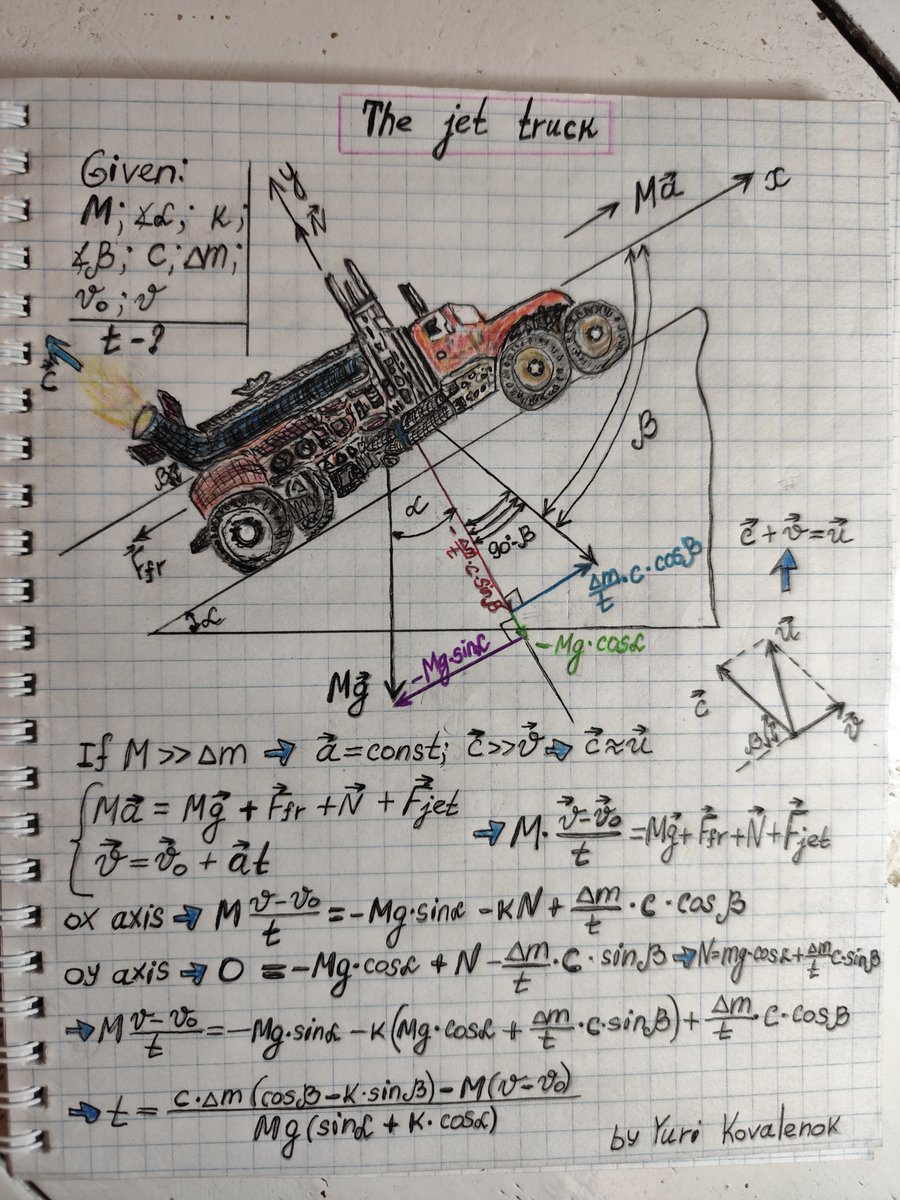 The jet truck
Given:
M; ∡α; к;
∡β; C; Δm;
v₀; v
t - ?
y
N⃗
Ma⃗
x
c⃗
β
β
F⃗fr
α
α
90°-β
-Δm/t·c·sinβ
Δm/t·c·cosβ
-Mg·cosα
-Mg·sinα
Mg⃗
c⃗ + v⃗ = u⃗
u⃗
c⃗
β
v⃗
If M >> Δm → a⃗ = const; c⃗ >> v⃗ → c⃗ ≈ u⃗
Ma⃗ = Mg⃗ + F⃗fr + N⃗ + F⃗jet
v⃗ = v⃗₀ + a⃗t
→ M·(v⃗-v⃗₀)/t = Mg⃗ + F⃗fr + N⃗ + F⃗jet
ox axis → M (v-v₀)/t = -Mg·sinα - кN + Δm/t · c · cosβ
oy axis → 0 = -Mg·cosα + N - Δm/t · c · sinβ → N=mg·cosα + Δm/t c·sinβ
→ M (v-v₀)/t = -Mg·sinα - к(Mg·cosα + Δm/t · c · sinβ) + Δm/t · c · cosβ
→ t = (c·Δm(cosβ - к·sinβ) - M(v-v₀))/(Mg(sinα + к·cosα))
by Yuri Kovalenok